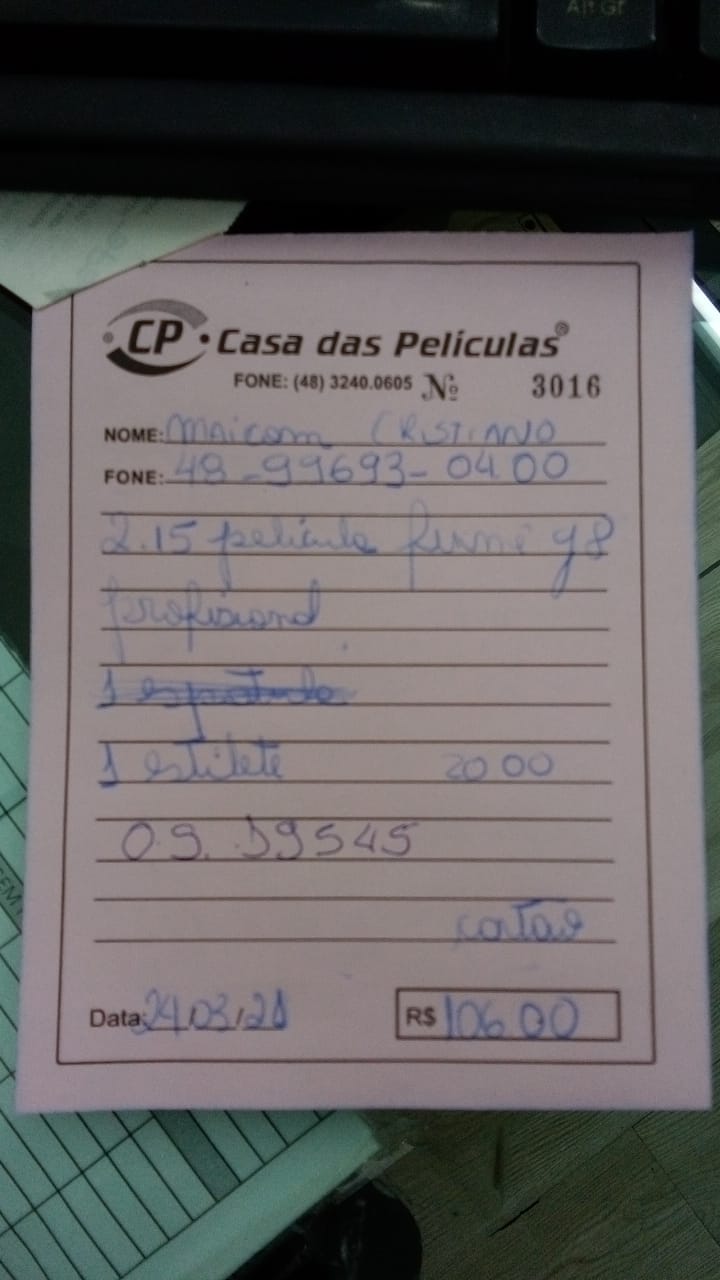 Alt Gr
CP Casa das Películas®
FONE: (48) 3240.0605 Nº 3016
NOME: Maicom CRISTIANO
FONE: 48-99693-0400
2.15 pelicula fumê g8
profisional
1 espatula
1 estilete 20 00
O.S. 19545
cartao
Data: 24/03/21 R$ 106 00